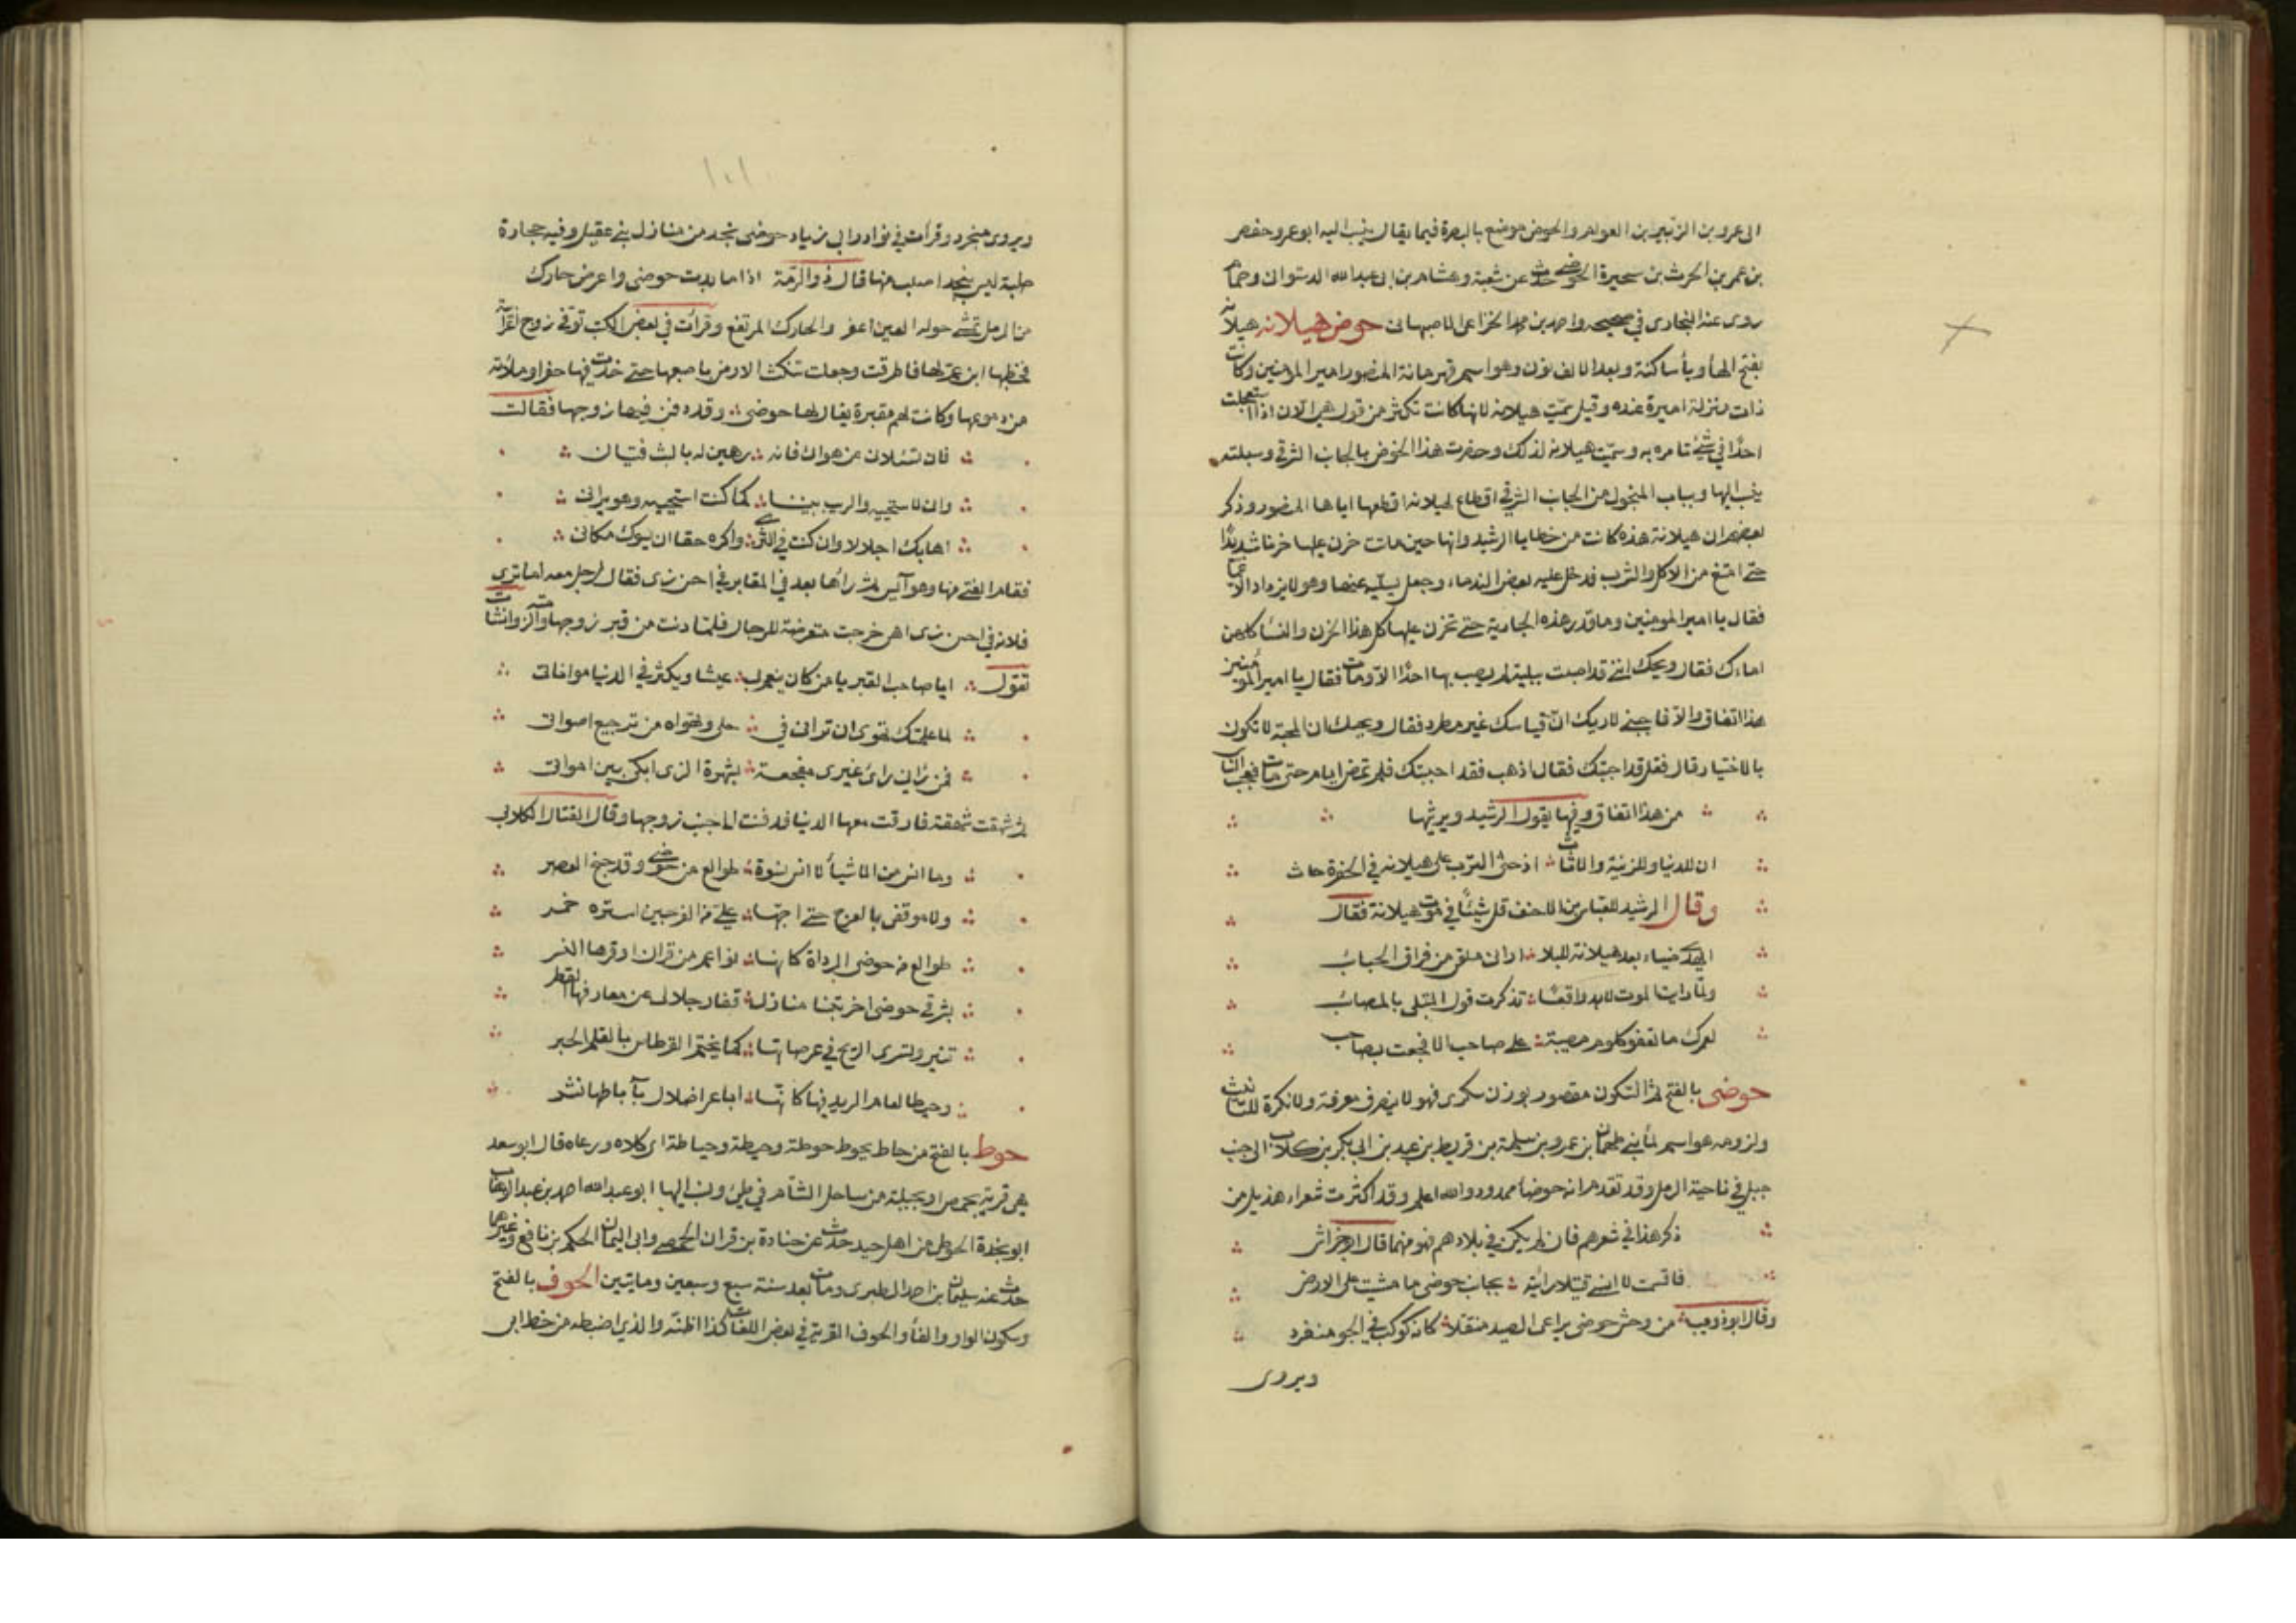 الى عروة بن الزبير بن العوام والحوض موضع بالبصرة فيما يقال ينسب اليه ابو عمرو حفص
بن عمر بن الحرث بن سخبرة الحوضي حدث عن شعبة وهشام بن ابى عبد الله الدستوانى وهمام
روى عنه البخارى فى صحيحه واحمد بن محمد الخزاعى الاصبهانى حوض هيلانه هيلانه
بفتح الهاء ويا ساكنة وبعد الالف نون وهو اسم قهرمانة المنصور امير المومنين وكانت
ذات منزلة اميرة عنده وقيل سميت هيلانه لانها كانت تكثر من قول هى الان اذا استعجلت
احدا فى شئ تامره به وسميت هيلانه لذلك وحفرت هذا الحوض بالجانب الشرقى وسبلته
ينسب اليها وبباب المحول من الجانب الشرقى اقطاع لهيلانه اقطعها اياها المنصور وذكر
بعضهم ان هيلانة هذه كانت من حظايا الرشيد وانها حين ماتت حزن عليها حزنا شديدا
حتى امتنع من الاكل والشرب فدخل عليه بعض الندماء وجعل يسليه عنها وهو لا يزداد الا غما
فقال يا امير المومنين وما قدر هذه الجارية حتى تحزن عليها كل هذا الحزن والنسا كلهن
اماءك فقال ويحك اننى قد اصبت ببلية لم يصب بها احدا الا ومات فقال يا امير المومنين
هذا اتفاق والا فاحبنى لاريك ان قياسك غير مطرد فقال ويحك ان المحبة لا تكون
بالاختيار قال فقل قد احببتك فقال اذهب فقد احببتك فلم تمض ايام حتى مات فعجب الناس
من هذا اتفاق وفيها يقول الرشيد ويرثيها
ان للدنيا وللزينة والاثاث اذ حثى الترب على هيلانه فى الحفرة حاث
وقال الرشيد للعباس بن الاحنف قل شيئا فى موت هيلانة فقال
ضياء بعد هيلانة للبلا ملقى من فراق الحبائب
ولما رايت الموت لابد واقعا تذكرت قول المبتلى بالمصائب
لعمرك ما تعفو كلوم مصيبة على صاحب الا فجعت بصاحب
حوضى بالفتح ثم السكون مقصور بوزن سكرى فهو لا ينصرف معرفة ولا نكرة للتانيث
ولزومه هو اسم لما بنى طهمان بن عمرو بن سلمة بن قريط بن عبد بن ابى بكر بن كلاب الى جنب
جبل فى ناحية الرمل وقد تقدم انه حوضا ممدود والله اعلم وقد اكثرت شعراء هذيل من
ذكر هذا فى شعرهم فان لم يكن فى بلادهم فهو منهما قال ابو خراش
فاقسمت لا انسى قتيلا رزئته بجانب حوضى ما مشيت على الارض
وقال ابو ذويب من وحش حوضى يراعى الصيد منتقلا كانه كوكب فى الجو منفرد
ويروى
١٠١
ويروى منجرد وقرات فى نوادر ابى زياد حوضى بنجد من منازل بنى عقيل وفيه حجارة
صلبة ليس بنجد اصلب منها قال ذو الرمة اذا ما بدت حوضى واعرض حارك
من الرمل تمشى حوله العين اعفر والحارك المرتفع وقرات فى بعض الكتب توفى زوج اعرابية
فخطبها ابن عم لها فاطرقت وجعلت تنكث الارض باصبعها حتى خدت فيها حفرا وملاته
من دموعها وكانت لهم مقبرة يقال لها حوضى وقد دفن فيها زوجها فقالت
فان تسئلانى عن هواى فانه رهين له بالبث فتيان
وانى لاستحييه والترب بيننا كما كنت استحييه وهو يرانى
اهابك اجلالا وان كنت فى الثرى واكره حقا ان يسوك مكانى
فقام الفتى منها وهو آيس ثم رآها بعد فى المقابر فى احسن زى فقال لرجل معه اما ترى
فلانه فى احسن زى اهى خرجت متعرضة للرجال فلما دنت من قبر زوجها وانشات
تقول ايا صاحب القبر يا من كان ينعم بى عيشا ويكثر فى الدنيا مواتاتى
لما علمتك تهوى ان ترانى فى حلى وتهواه من ترجيع اصواتى
فمن رانى راى عبرى مفجعة بشهرة الزى ابكى بين امواتى
ثم شهقت شهقة فارقت معها الدنيا فدفنت الى جنب زوجها وقال القتال الكلابى
وما انس من الاشيا لا انس نسوة طوالع من حوضى وقد جنح العصر
ولا موقفى بالعرج حتى اجنها على من العرجين استره حمر
طوالع من حوضى الرداة كانها نواعم من قران اوقرها النسر
بشرقى حوضى اخرتنا منازل قفار جلا لى عن معارفها القطر
تنير وتسرى الريح فى عرصاتها كما يختم القرطاس بالقلم الحبر
وخيطا نعام الربد فيها كانها اباعر ضلال باباطها نشر
حوط بالفتح من حاط يحوط حوطة وحيطة وحياطة اى كلاه ورعاه قال ابو سعد
هى قرية بحمص او بجبلة من ساحل الشام فى ظنى ونسب اليها ابو عبد الله احمد بن عبد الوهاب
ابو نجدة الحوطى من اهل حدث عن جنادة بن قران الحمصى وابى اليمان الحكم بن نافع وغيرهما
حدث عنه سليمان بن احمد الطبرى ومات بعد سنة سبع وسبعين ومايتين الحوف بالفتح
وسكون الواو والفا والحوف القرية فى بعض اللغات كذا اظنه والذى اضبطه من خط ابى